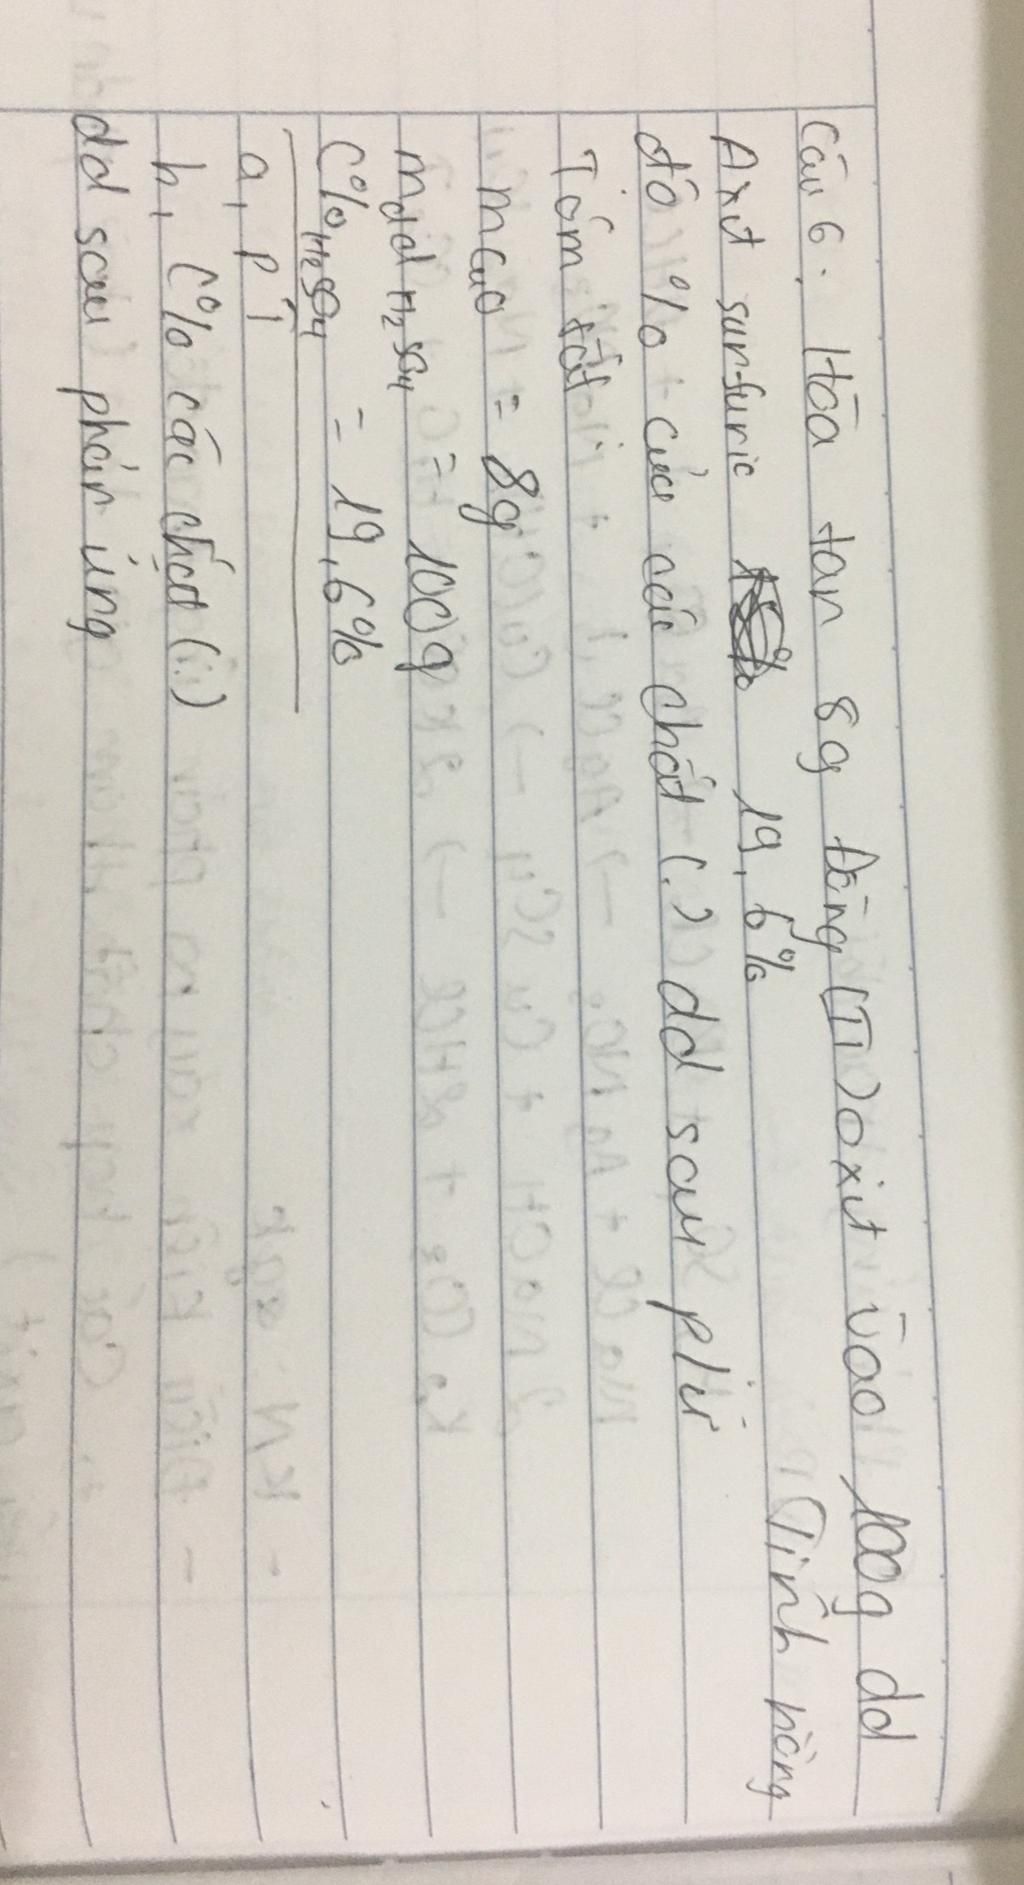 Câu 6: Hòa tan 8g đồng (II) oxit vào 100g dd
Axit sunfuric 19,6% Tính nồng
độ % của các chất (.) dd sau pư
Tóm tắt
mCuO = 8g
mdd H₂SO₄ = 100g
C% H₂SO₄ = 19,6%
a, PT
b, C% các chất (.)
dd sau phản ứng